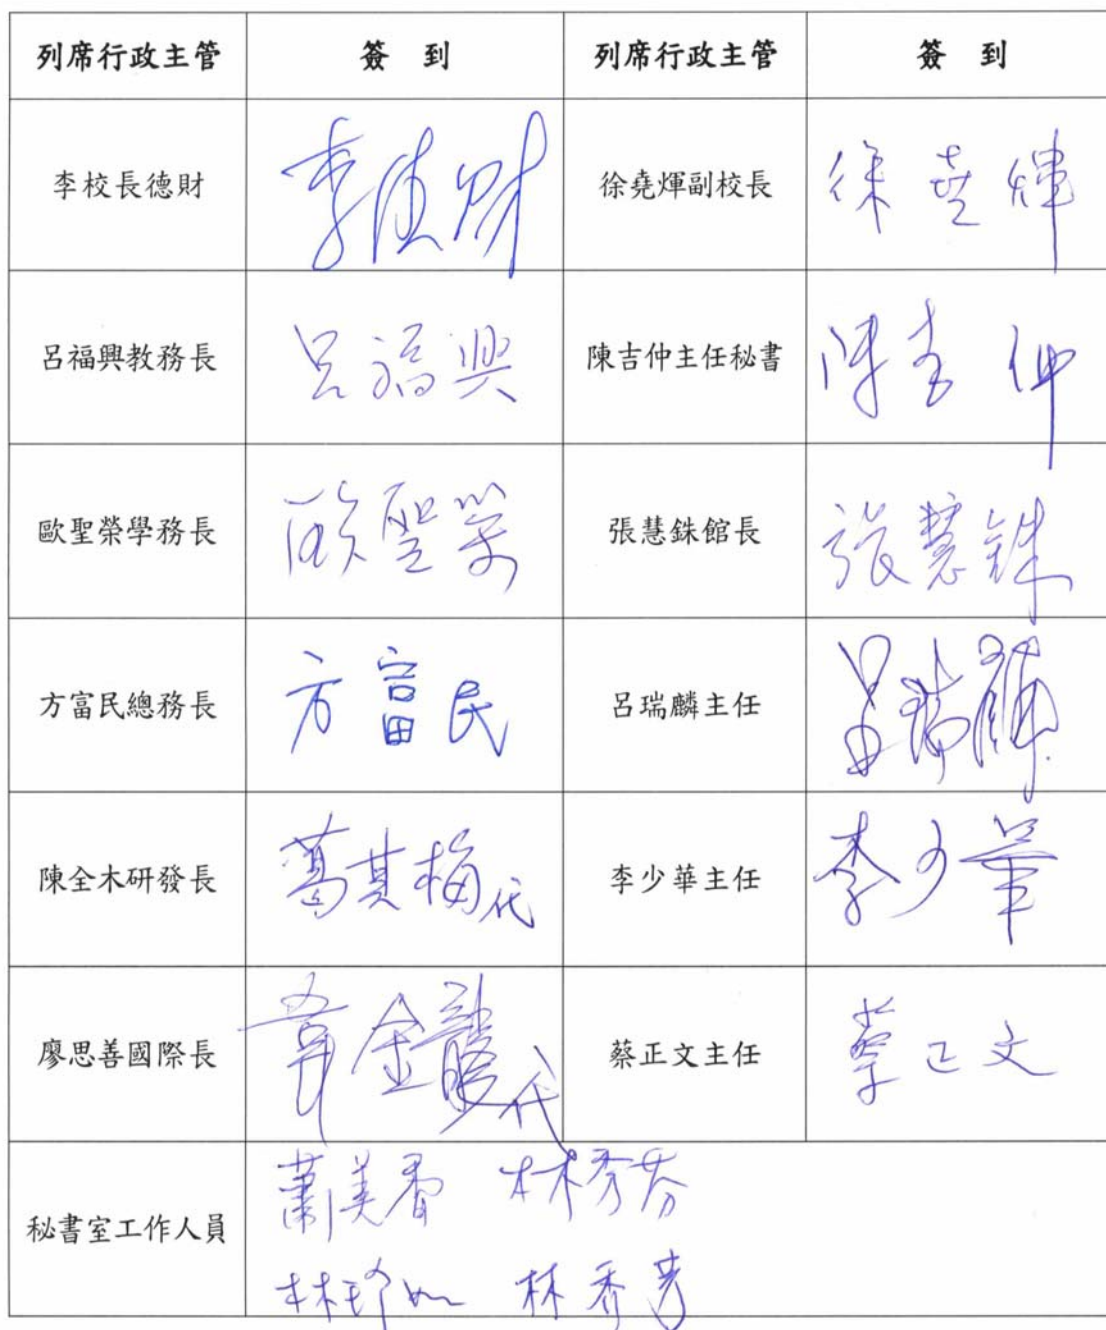 列席行政主管 簽到 列席行政主管 簽到
李校長德財 李德財 徐堯煇副校長 徐堯煇
呂福興教務長 呂福興 陳吉仲主任秘書 陳吉仲
歐聖榮學務長 歐聖榮 張慧銖館長 張慧銖
方富民總務長 方富民 呂瑞麟主任 呂瑞麟
陳全木研發長 葛其梅代 李少華主任 李少華
廖思善國際長 金龍代 蔡正文主任 蔡正文
秘書室工作人員 蕭美香 林秀芬
林 林秀芳